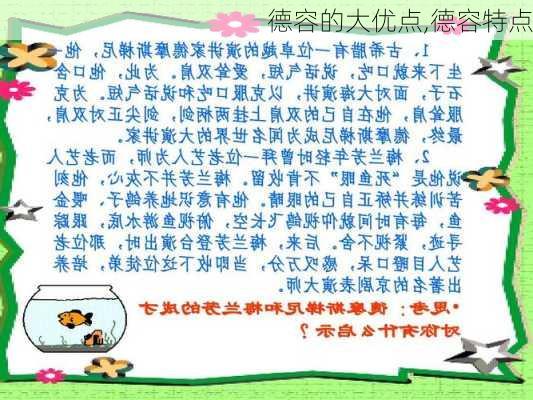 德容的大优点,德容特点
1、古希腊有一位卓越的演讲家德摩斯梯尼，他一
生下来就口吃，说话气短，爱耸双肩。为此，他口含
石子，面对大海演讲，以克服口吃和说话气短。为克
服耸肩，他在自己的双肩上挂两柄剑，剑尖正对双肩，
最终，德摩斯梯尼成为闻名世界的大演讲家。
2、梅兰芳年轻时曾拜一位老艺人为师，而老艺人
说他是“死鱼眼”不肯收留。梅兰芳并不灰心，他刻
苦训练并矫正自己的眼睛。他有意识地养鸽子、喂金
鱼，每有时间就仰视鸽飞长空，俯视鱼游水底，跟踪
寻迹，紧视不舍。后来，梅兰芳登台演出时，那位老
艺人目瞪口呆，感叹万分，当即收下这位徒弟，培养
出著名的京剧表演大师。
•思考：德摩斯梯尼和梅兰芳的成才
对你有什么启示？